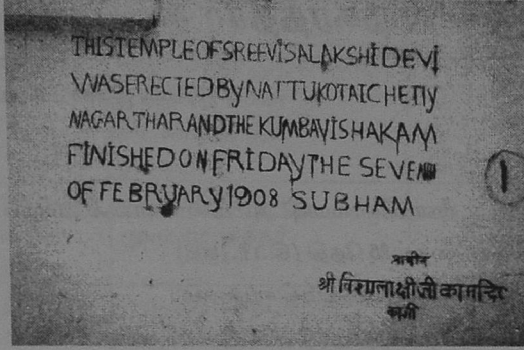 THIS TEMPLE OF SREE VISALAKSHI DEVI
WAS ERECTED BY NATTUKOTAI CHETTY
NAGARTHAR AND THE KUMBAVISHAKAM
FINISHED ON FRIDAY THE SEVENTH
OF FEBRUARY 1908 SUBHAM
1
प्राचीन
श्री विशालाक्षी जी का मन्दिर
काशी